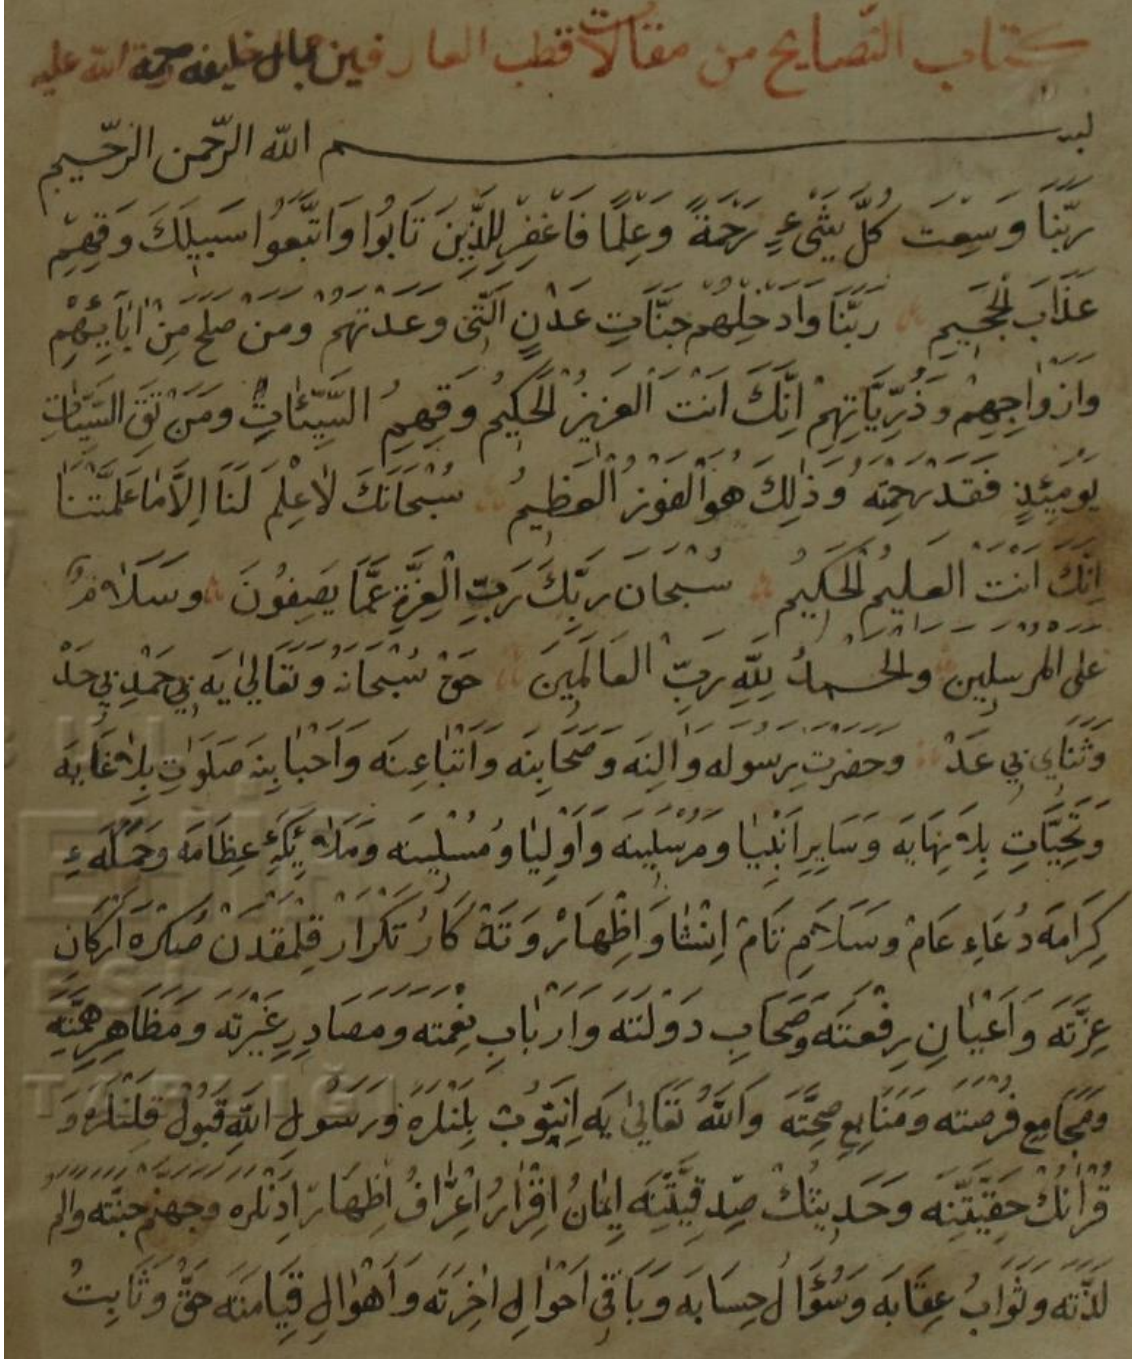 كتاب النصايح من مقالات قطب العارفين جمال خليفه رحمة الله عليه
بسم الله الرّحمن الرّحيم
ربَّنَا وَسِعْتَ كُلَّ شَيْءٍ رَحْمَةً وَعِلْمًا فَاغْفِرْ لِلَّذِينَ تَابُوا وَاتَّبَعُوا سَبِيلَكَ وَقِهِمْ
عَذَابَ الْجَحِيمِ رَبَّنَا وَادْخِلْهُمْ جَنَّاتِ عَدْنٍ الَّتِى وَعَدْتَهُمْ وَمَنْ صَلَحَ مِنْ اٰبَائِهِمْ
وَاَزْوَاجِهِمْ وَذُرِّيَّاتِهِمْ اِنَّكَ اَنْتَ الْعَزِيزُ الْحَكِيمُ وَقِهِمُ السَّيِّئَاتِ وَمَنْ تَقِ السَّيِّئَاتِ
يَوْمَئِذٍ فَقَدْ رَحِمْتَهُ وَذٰلِكَ هُوَ الْفَوْزُ الْعَظِيمُ سُبْحَانَكَ لَا عِلْمَ لَنَا اِلَّا مَا عَلَّمْتَنَا
اِنَّكَ اَنْتَ الْعَلِيمُ الْحَكِيمُ سُبْحَانَ رَبِّكَ رَبِّ الْعِزَّةِ عَمَّا يَصِفُونَ وَسَلَامٌ
عَلَى الْمُرْسَلِينَ وَالْحَمْدُ لِلّٰهِ رَبِّ الْعَالَمِينَ حَقْ سُبْحَانَهُ وَتَعَالٰى يَه بِي حَمْدِ بِي حَدْ
وَثَنَايِ بِي عَدْ وَحَضْرَتِ رَسُولَه وَاٰلِنَه وَصَحَابِنَه وَاَتْبَاعِنَه وَاَحْبَابِنَه صَلَوَاتِ بِلَا غَايَه
وَتَحِيَّاتِ بِلَا نِهَايَه وَسَايِرِ اَنْبِيَا وَمُرْسَلِينَه وَاَوْلِيَا وَمُسْلِمِينَه وَمَلَائِكَهِٔ عِظَامَه وَحَمَلَهِٔ
كِرَامَه دُعَاءِ عَامْ وَسَلَامِ تَامْ اِنْشَا وَاِظْهَارْ وَتَهْ كَارُ تَكْرَارْ قِلْمَقْدَنْ صُكْرَه اَرْكَانِ
عِزَّتَه وَاَعْيَانِ رِفْعَتَه وَصَحَابِ دَوْلَتَه وَاَرْبَابِ نِعْمَتَه وَمَصَادِرِ غَيْرَتَه وَمَظَاهِرِ هِمَّتَه
وَمَجَامِعِ فُرْصَتَه وَمَنَابِعِ صِحَّتَه وَاللّٰهُ تَعَالٰى يَه اِينَنُوبْ بِلْنَلَرَه وَرَسُولِ اللّٰهِ قَبُولْ قِلْنَلَرَه وَ
قُرْاٰنُكْ حَقِّيَّتِنَه وَحَدِيثُكْ صِدْقِيَّتِنَه اِيمَانْ اِقْرَارْ اِعْتِرَافْ اِظْهَارْ اِدَنْلَرَه وَجَهَنَّمْ جَنَّتَه وَاَلَمْ
لَذَّتَه وَثَوَابْ عِقَابَه وَسُؤَالْ حِسَابَه وَبَاقِي اَحْوَالِ اٰخِرَتَه وَاَهْوَالِ قِيَامَتَه حَقْ وَثَابِتْ